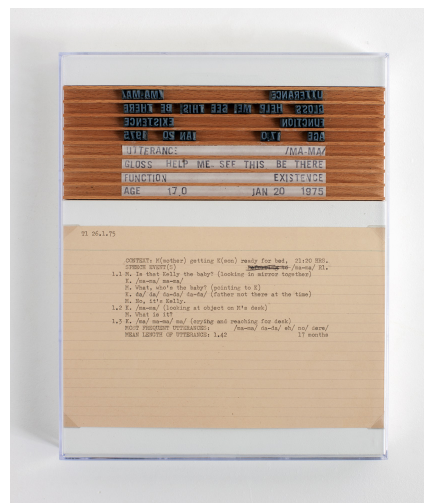 UTTERANCE /MA-MA/
GLOSS HELP ME. SEE THIS. BE THERE
FUNCTION EXISTENCE
AGE 17.0 JAN 20 1975
UTTERANCE /MA-MA/
GLOSS HELP ME. SEE THIS BE THERE
FUNCTION EXISTENCE
AGE 17.0 JAN 20 1975
T1 26.1.75
CONTEXT: M(other) getting K(son) ready for bed, 21:20 HRS.
SPEECH EVENT(S) /ma-ma/ E1.
1.1 M. Is that Kelly the baby? (looking in mirror together)
K. /ma-ma/ ma-ma/
M. What, who's the baby? (pointing to K)
K. da/ da/ da-da/ da-da/ (father not there at the time)
M. No, it's Kelly.
1.2 K. /ma-ma/ (looking at object on M's desk)
M. What is it?
1.3 K. /ma/ ma-ma/ ma/ (crying and reaching for desk)
MOST FREQUENT UTTERANCES: /ma-ma/ da-da/ eh/ no/
MEAN LENGTH OF UTTERANCE: 1.42 17 months